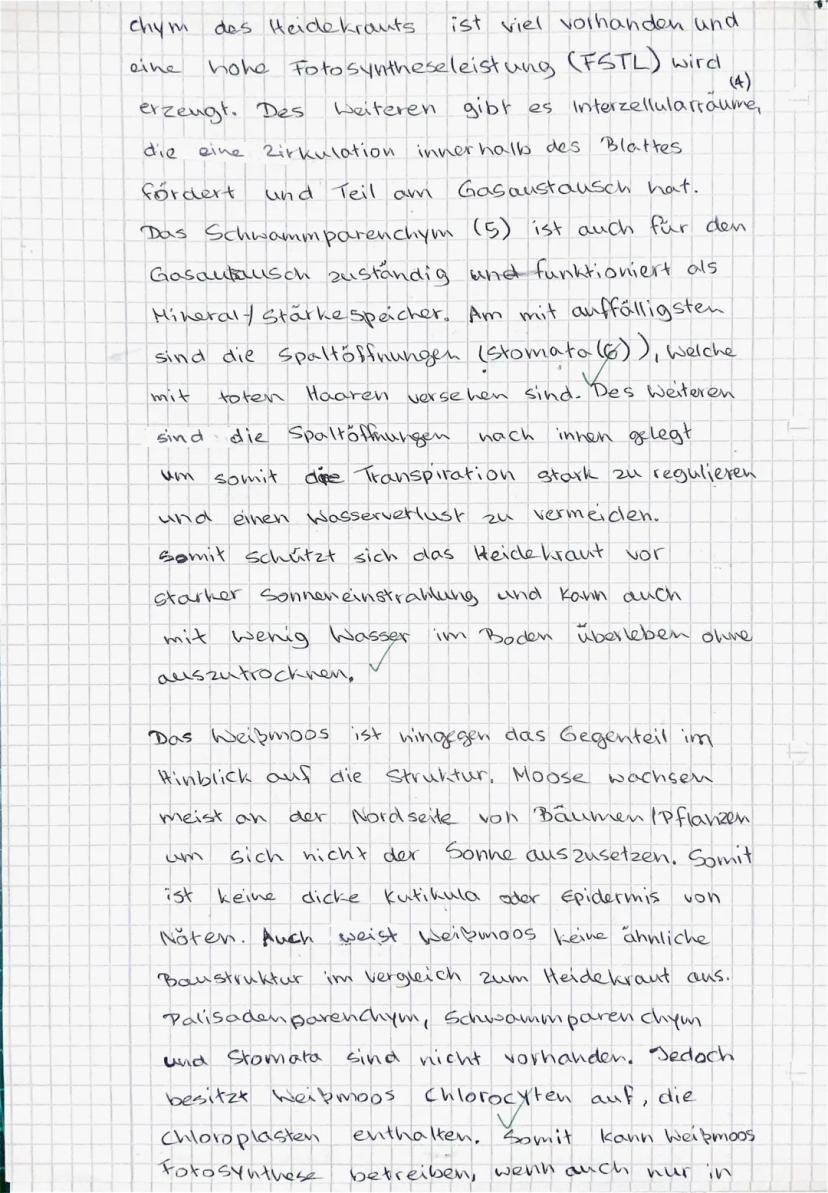 chym des Heidekrauts ist viel vorhanden und
eine hohe Fotosyntheseleistung (FSTL) wird
(4)
erzeugt. Des Weiteren gibt es Interzellularräume,
die eine Zirkulation innerhalb des Blattes
fördert und Teil am Gasaustausch hat.
Das Schwammparenchym (5) ist auch für den
Gasautausch zuständig und funktioniert als
Mineral-/Stärkespeicher. Am mit auffälligsten
sind die Spaltöffnungen (Stomata(6)), welche
mit toten Haaren versehen sind. Des Weiteren
sind die Spaltöffnungen nach innen gelegt
um somit die Transpiration stark zu regulieren
und einen Wasserverlust zu vermeiden.
Somit schützt sich das Heidekraut vor
starker Sonneneinstrahlung und kann auch
mit wenig Wasser im Boden überleben ohne
auszutrocknen.
Das Weißmoos ist hingegen das Gegenteil im
Hinblick auf die Struktur. Moose wachsen
meist an der Nordseite von Bäumen/Pflanzen
um sich nicht der Sonne auszusetzen. Somit
ist keine dicke Kutikula oder Epidermis von
Nöten. Auch weist Weißmoos keine ähnliche
Baustruktur im vergleich zum Heidekraut aus.
Palisadenparenchym, Schwammparenchym
und Stomata sind nicht vorhanden. Jedoch
besitzt Weißmoos Chlorocyten auf, die
Chloroplasten enthalten. Somit kann Weißmoos
Fotosynthese betreiben, wenn auch nur in